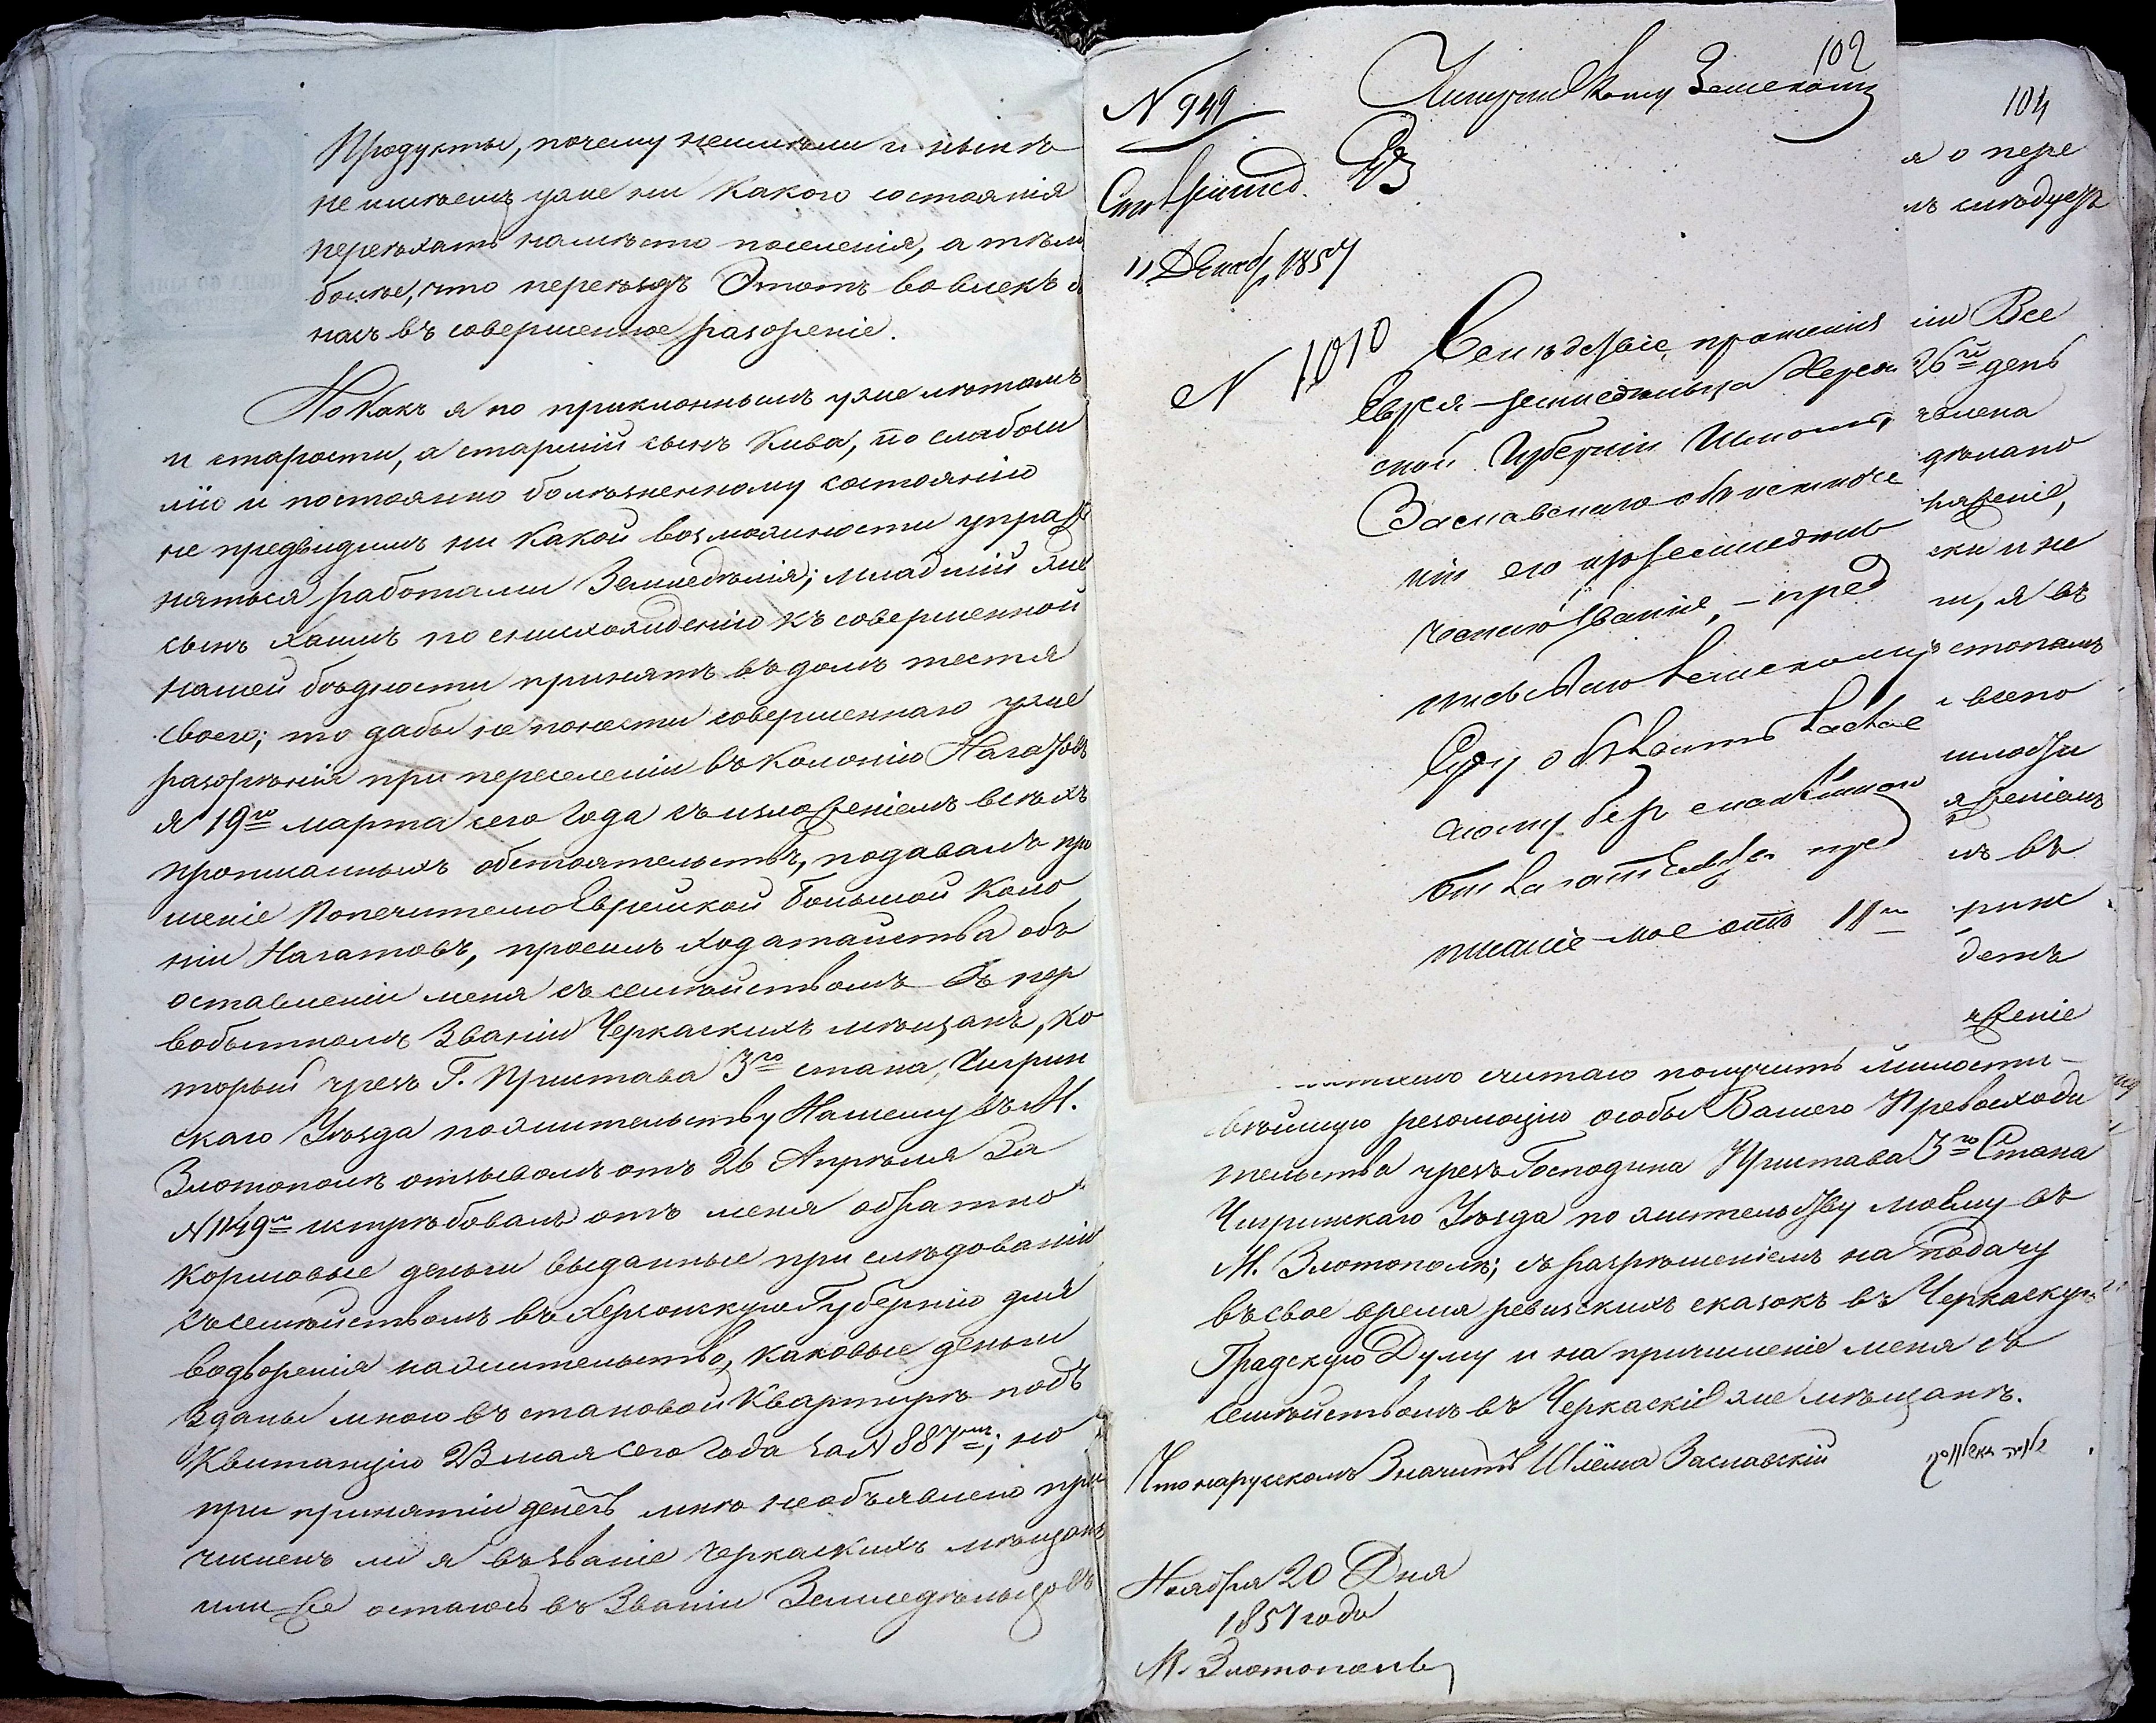 Продукты, почему неимѣли и нынѣ
не имѣемъ уже ни какого состоянія
переѣхать намѣсто поселенія, а тѣмъ
болѣе, что переѣздъ Этотъ вовлекъ бы
насъ въ совершенное разореніе.
Но Какъ я по приклоннымъ уже лѣтамъ
и старости, а старшій сынъ Кива, по слабоси
лію и постоянно болѣзненному состоянію
не предвидимъ ни какой возможности упраж
няться работами Земледѣлія; младшій же
сынъ Хаимъ по снисхожденію къ совершенной
нашей бѣдности принятъ въ домъ тестя
своего; то дабы не понести совершеннаго уже
разорѣнія при переселеніи въ Колонію Нагартовъ
я 19го марта сего Года съ изложеніемъ всѣхъ
прописанныхъ обстоятельствъ, подавалъ про
шеніе Попечителю Еврейской Большой Коло
ніи Нагартовъ, просилъ ходатайства объ
оставленіи меня съ семѣйствомъ въ пер
вобытномъ Званіи Черкаскихъ мѣщанъ, ко
торый чрезъ Г. Пристава 3го стана, Чигрин
скаго Уѣзда пожительству Нашему въ М.
Златополѣ отзывомъ отъ 26 Апрѣля За
N 1149м истрѣбовалъ отъ меня обратно
кормовые деньги выданные при слѣдованіи
съ семѣйствомъ въ Херсонскую Губернію для
водворенія на жительство, каковые деньги
Зданы мною въ становой Квартирѣ подъ
Квитанцію 23 мая сего Года за N 887мъ; но
при принятіи денегъ мнѣ необъявлено при
численъ ли я въ званіе Черкаскихъ мѣщанъ
или Все остаюсь въ Званіи Земледѣльцовъ
102
N 949
Чигринскому Земскому
11 Декаб. 1857
N 1010
Вслѣдствіе прошенія
Еврея-земледѣльца Херсон
ской Губерніи Шлемы,
Заславскаго объ исключе
ніи его изъ земледѣль
ческаго званія, - пред
писываю Земскому
Суду объявить Заслав
скому
пред
писаніе мое отъ 11го
104
я о пере
мъ слѣдуетъ
іи Все
26й день
дѣлано
ряженіе,
ски и не
ли, я въ
стопамъ
всепо
милости
яженіемъ
мъ въ
детъ
яженіе
считаю получить милости-
вѣйшую резолюцію особы Вашего Превосходи
тельства чрезъ Господина Пристава 3го Стана
Чигринскаго Уѣзда по жительству моему въ
М. Златополѣ; съ разрѣшеніемъ на подачу
въ свое время ревизскихъ сказокъ въ Черкаскую
Градскую Думу и на причисленіе меня съ
семѣйствомъ въ Черкаскіе же мѣщане.
Что нарусскомъ Значитъ Шлёма Заславскій
Ноября 20 Дня
1857 года
М. Златополь